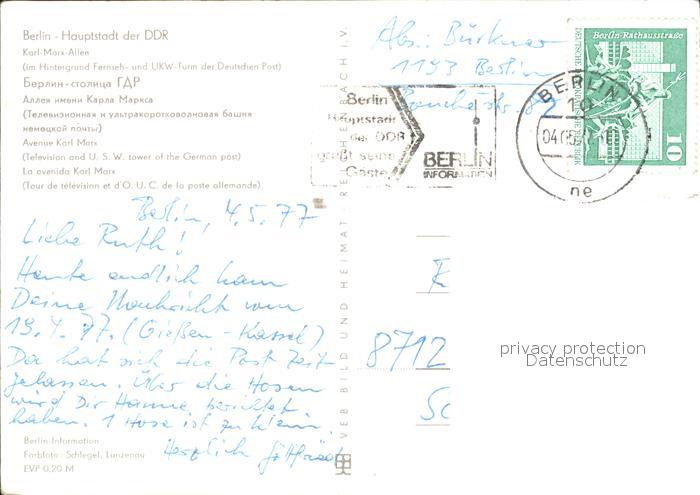 Berlin - Hauptstadt der DDR
Karl-Marx-Allee
(im Hintergrund Fernseh- und UKW-Turm der Deutschen Post)
Берлин-столица ГДР
Аллея имени Карла Маркса
(Телевизионная и ультракоротковолновая башня
немецкой почты)
Avenue Karl Marx
(Television and U. S. W. tower of the German post)
La avenida Karl Marx
(Tour de télévision et d'O. U. C. de la poste allemande)
Berlin, 4.5.77
Liebe Ruth!
Heute endlich kam
Deine Nachricht vom
19.4.77. (Gießen - Kassel)
Da hat sich die Post Zeit
gelassen. Über die Hosen
wird Dir Hanne berichtet
haben. 1 Hose ist zu klein.
Herzlich
Berlin-Information
Farbfoto: Schlegel, Lunzenau
EVP 0,20 M
VEB BILD UND HEIMAT REICHENBACH I. V.
Abs.: Bürkner
1193 Berlin
Bouchéstr.
Berlin
Hauptstadt
der DDR
grüßt seine
Gäste
BERLIN
INFORMATION
BERLIN
ne
Berlin-Rathausstraße
10
8712
privacy protection
Datenschutz